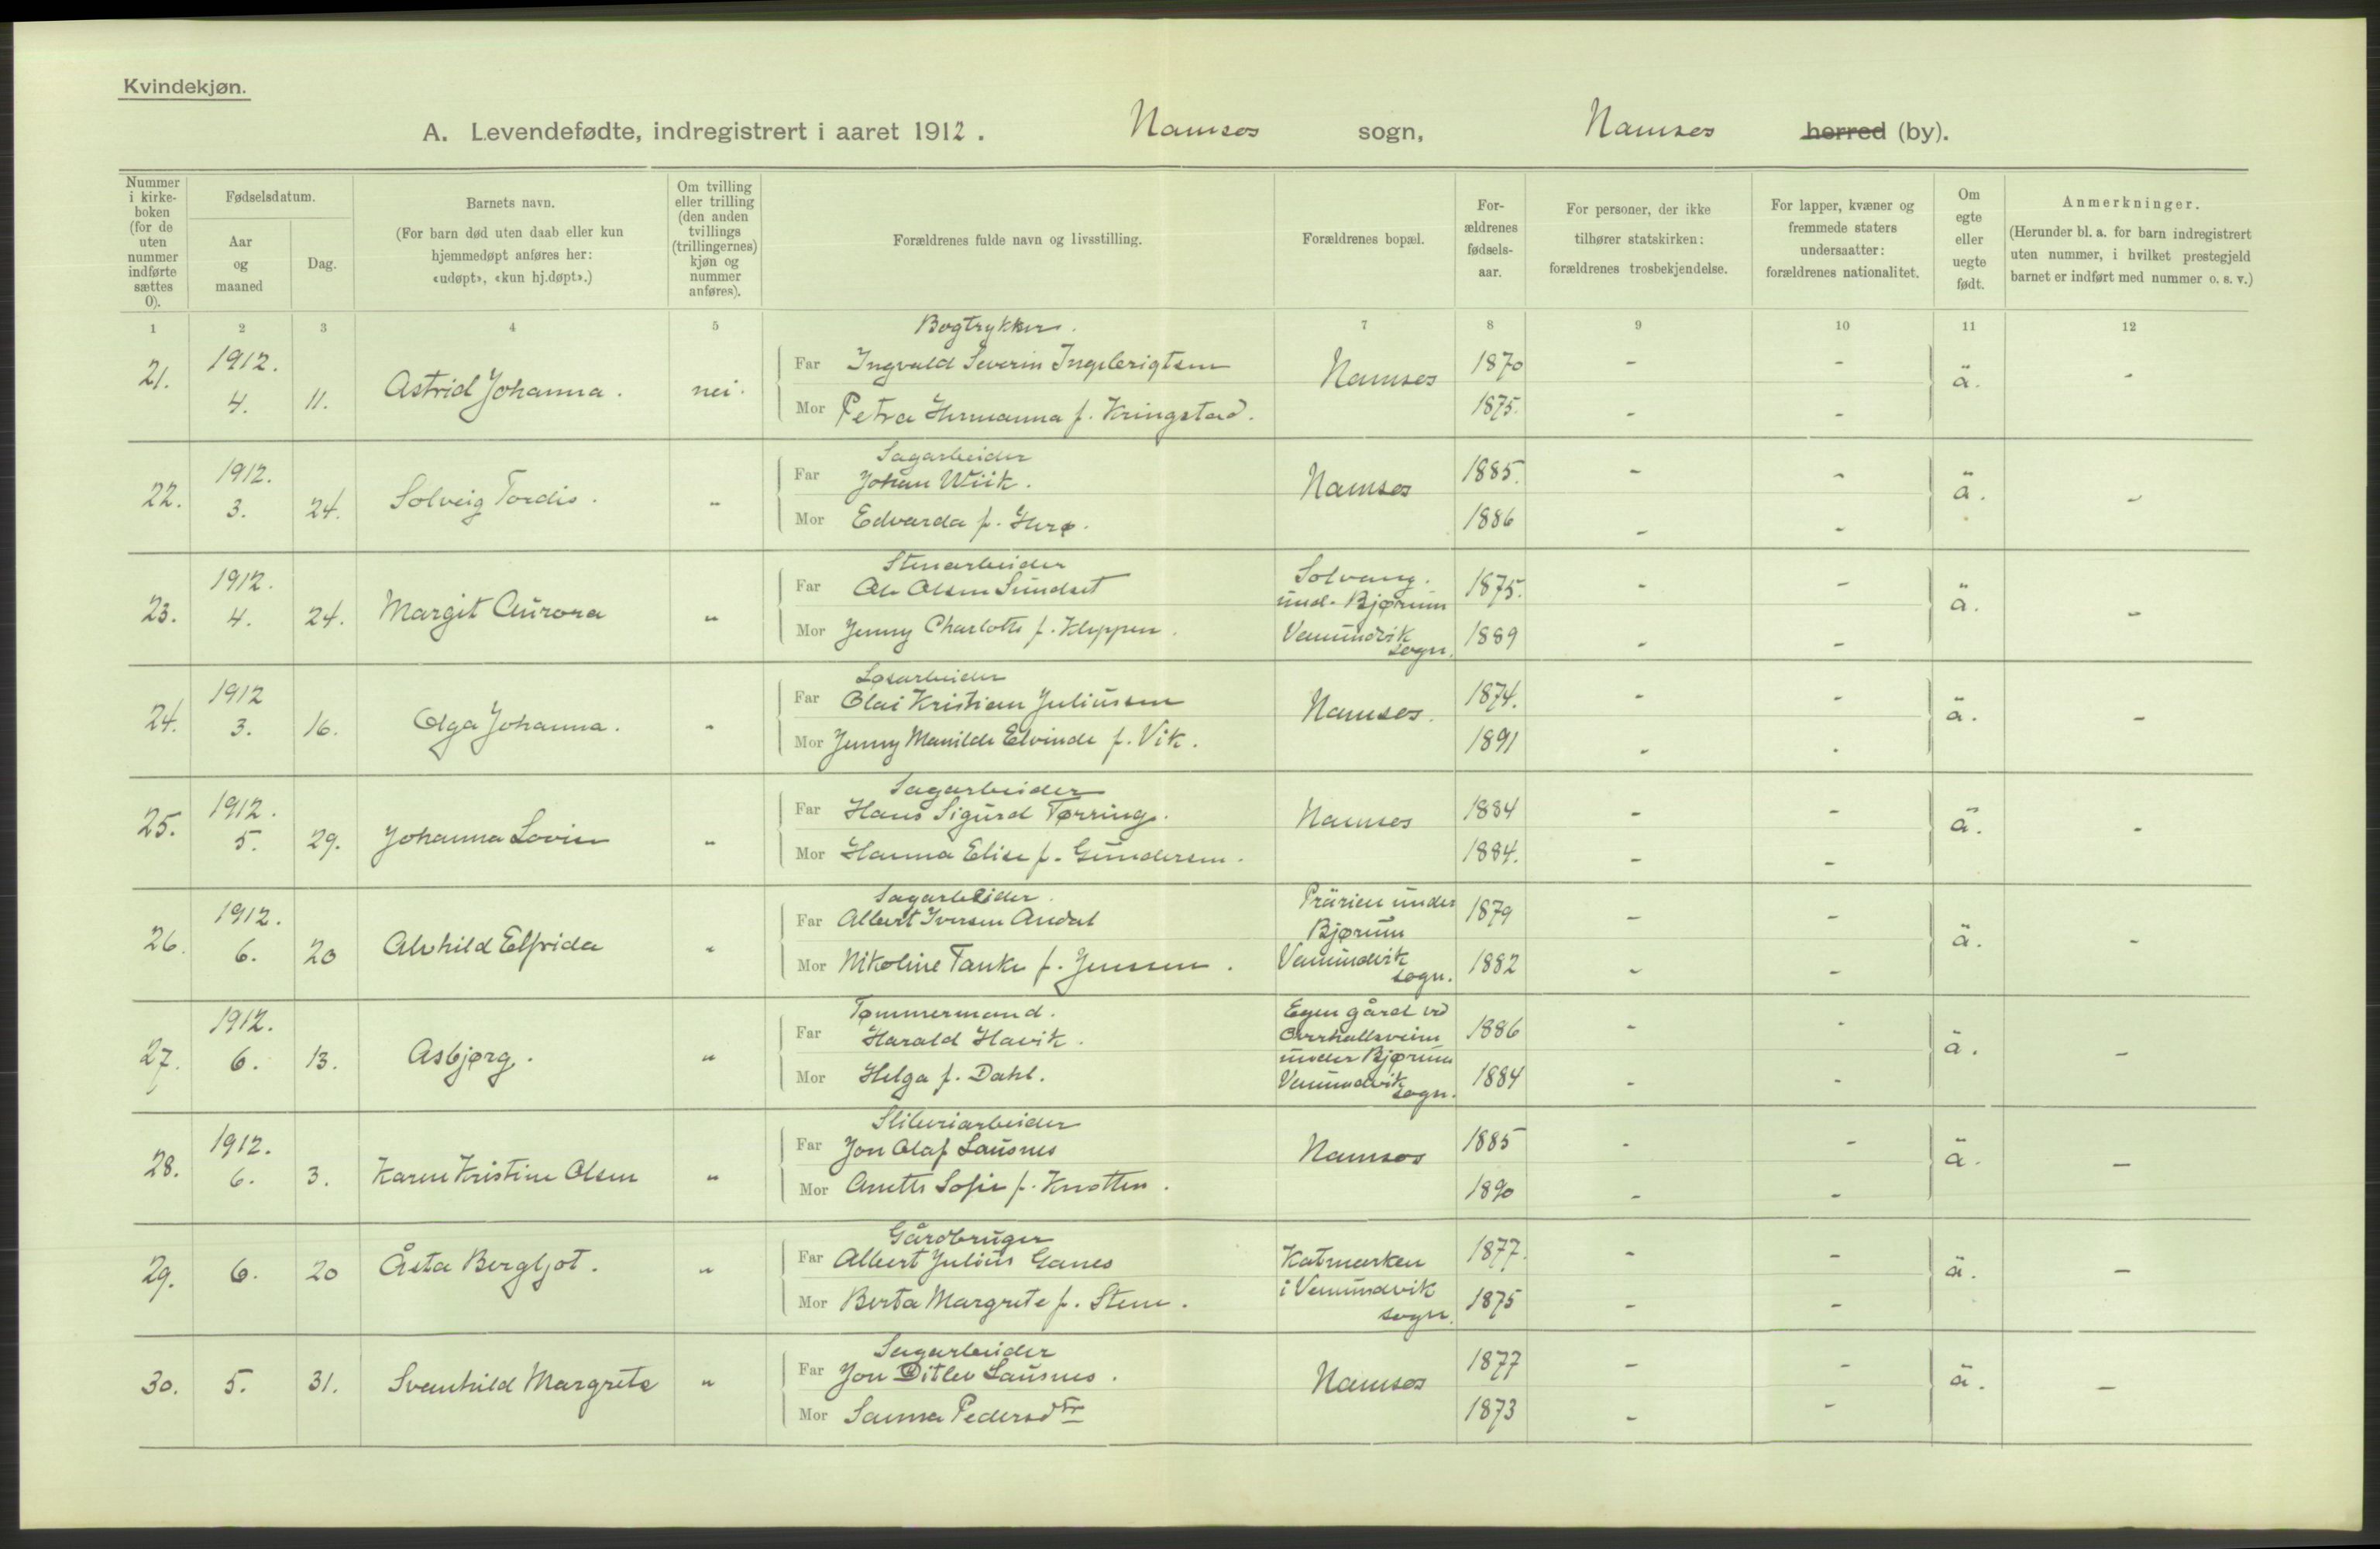 Kvindekjøn.
A. Levendefødte, indregistrert i aaret 1912. Namsos sogn, Namsos herred (by).
Nummer i kirkeboken (for de uten nummer indførte sættes 0).
Fødselsdatum.
Aar og maaned
Dag.
Barnets navn.
(For barn død uten daab eller kun hjemmedøpt anføres her: «udøpt», «kun hj.døpt».)
Om tvilling eller trilling (den anden tvillings (trillingernes) kjøn og nummer anføres).
Forældrenes fulde navn og livsstilling.
Forældrenes bopæl.
Forældrenes fødselsaar.
For personer, der ikke tilhører statskirken: forældrenes trosbekjendelse.
For lapper, kvæner og fremmede staters undersaatter: forældrenes nationalitet.
Om egte eller uegte født.
Anmerkninger.
(Herunder bl. a. for barn indregistrert uten nummer, i hvilket prestegjeld barnet er indført med nummer o. s. v.)
1 2 3 4 5 7 8 9 10 11 12
Bogtrykker.
21. 1912. 4. 11. Astrid Johanna. nei.
Far Ingvald Severin Ingebrigtsen Namsos 1870 - - ä. -
Mor Petra Hermanna f. Kringstad. 1875. - -
Sagarbeider
22. 1912. 3. 24. Solveig Tordis. "
Far Johan Wiik. Namsos 1885. - - ä. -
Mor Edvarda f. 1886 - -
Stenarbeider
23. 1912. 4. 24. Margit Aurora "
Far Ole Olsen Sundset Solvang. und. Bjørum 1875. - - ä. -
Mor Jenny Charlotte f. Kleppen. Vemundvik sogn. 1889 - -
Løsarbeider
24. 1912 3. 16. Olga Johanna. "
Far Olai Kristian Juliussen Namsos. 1874. - - ä. -
Mor Jenny Manilde Elvinde f. Vik. 1891 - -
Sagarbeider
25. 1912. 5. 29. Johanna Lovise "
Far Hans Sigurd Tørring. Namsos 1884 - - ä. -
Mor Hanna Elise f. Gundersen. 1884. - -
Sagarbeider.
26. 1912. 6. 20 Alvhild Elfrida "
Far Albert Iversen Andal Prärien under Bjørum 1879 - - ä. -
Mor Nikoline Tanke f. Jenssen. Vemundvik sogn. 1882 - -
Tømmermand.
27. 1912. 6. 13. Asbjørg. "
Far Harald Havik. Egen gård ved Overhallsveien 1886 - - ä. -
Mor Helga f. Dahl. under Bjørum Vemundvik sogn. 1884 - -
Sliberiarbeider
28. 1912. 6. 3. Karen Kristine Olsen "
Far Jon Olaf Lausnes Namsos 1885 - - ä. -
Mor Anette Sofie f. Knotten. 1890 - -
Gårdbruger
29. 6. 20 Åsta Bergljot. "
Far Albert Julius Ganes Katmarken 1877. - - ä. -
Mor Berta Margrete f. Stene. i Vemundvik sogn. 1875 - -
Sagarbeider
30. 5. 31. Svanhild Margrete "
Far Jon Ditlev Lausnes. Namsos 1877 - - ä. -
Mor Sanna Pedersdtr 1873 - -